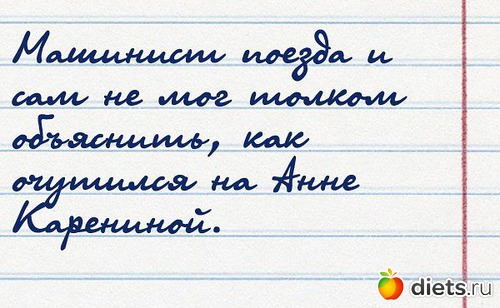 Машинист поезда и
сам не мог толком
объяснить, как
очутился на Анне
Карениной.
diets.ru